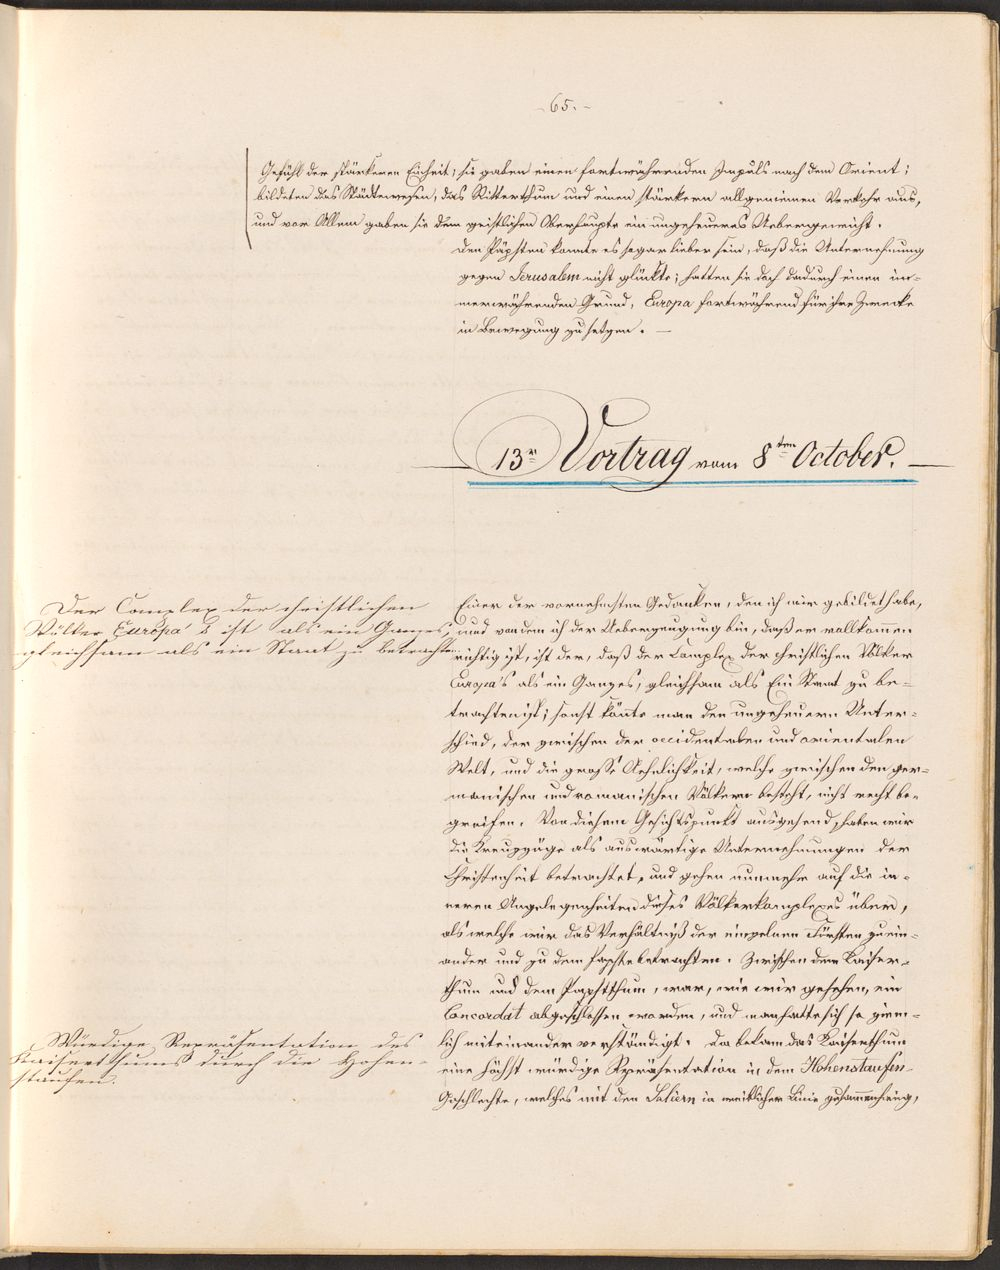 - 65. -
Gefühl der stärkeren Einheit; sie gaben einen fortwährenden Impuls nach dem Orient;
bildeten das Städtewesen, das Ritterthum und einen stärkern allgemeinen Verkehr aus,
und vor Allem gaben sie dem geistlichen Oberhaupte ein ungeheueres Uebergewicht.
Den Päpsten konnte es sogar lieber sein, daß die Unternehmung
gegen Jerusalem nicht glückte; hatten sie doch dadurch einen im-
merwährenden Grund, Europa fortwährend für ihre Zwecke
in Bewegung zu setzen. —
13r Vortrag vom 8ten October.
Der Complex der christlichen
Völker Europa's ist als ein Ganzes,
gleichsam als ein Staat zu betrachten.
Einer der vornehmsten Gedanken, den ich mir gebildet habe,
und von dem ich der Ueberzeugung bin, daß er vollkommen
richtig ist, ist der, daß der Complex der christlichen Völker
Europa's als ein Ganzes, gleichsam als Ein Staat zu be-
trachten ist; sonst könnte man den ungeheuern Unter-
schied, der zwischen der occidentalen und orientalen
Welt, und die große Aehnlichkeit, welche zwischen den ger-
manischen und romanischen Völkern besteht, nicht recht be-
greifen. Von diesem Gesichtspunkt ausgehend, haben wir
die Kreuzzüge als auswärtige Unternehmungen der
Christenheit betrachtet, und gehen nunmehr auf die in-
neren Angelegenheiten dieses Völkerkomplexes über,
als welche wir das Verhältniß der einzelnen Fürsten zu ein-
ander und zu dem Papste betrachten. Zwischen dem Kaiser-
thum und dem Papstthum, war, wie wir gesehen, ein
Concordat abgeschlossen worden, und man hatte sich so ziem-
lich miteinander verständigt. Da bekam das Kaiserthum
eine höchst würdige Repräsentation in dem Hohenstaufen-
Geschlechte, welches mit den Saliern in weiblicher Linie zusammenhing,
Würdige Repräsentation des
Kaiserthums durch die Hohen-
staufen.